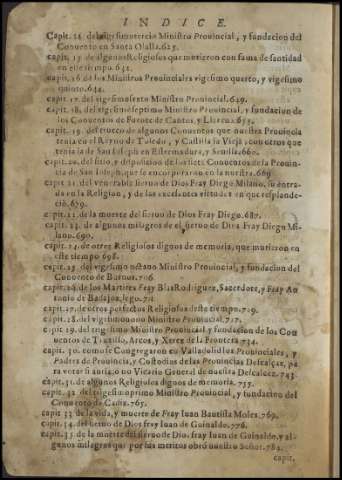 INDICE.
Capit. 14. del vigesimotercio Ministro Provincial, y fundacion del
Convento en Santa Olalla. 625.
capit. 15. de algunos Religiosos que murieron con fama de santidad
en este tiempo. 632.
capit. 16. de los Ministros Provinciales vigesimo quarto, y vigesimo
quinto. 644.
capit. 17. del vigesimosexto Ministro Provincial. 649.
capit. 18. del vigesimoseptimo Ministro Provincial, y fundacion de
los Conventos de Fuente de Cantos, y Llerena. 655.
capit. 19. del trueco de algunos Conventos que nuestra Provincia
tenia en el Reyno de Toledo, y Castilla la Vieja, con otros que
tenia la de San Ioseph en Estremadura, y Sevilla. 660.
capit. 20. del sitio, y disposicion de los siete Conventos de la Provin-
cia de San Ioseph, que se encorporaron en la nuestra. 669
capit. 21. del venerable siervo de Dios Fray Diego Milano, su entra-
da en la Religion, y de las excelentes virtudes en que resplande-
ciò. 679.
capit. 22. de la muerte del siervo de Dios Fray Diego. 687.
capit. 23. de algunos milagros de el siervo de Dios Fray Diego Mi-
lano. 690.
capit. 24. de otros Religiosos dignos de memoria, que murieron en
este tiempo 698.
capit. 25. del vigesimo octavo Ministro Provincial, y fundacion del
Convento de 706.
capit. 26. de los Martires Fray Blas Rodriguez, Sacerdote, y Fray An-
tonio de Badajoz, lego. 711
capit. 27. de otros perfectos Religiosos deste tiempo. 719.
capit. 28. del vigesimonono Ministro Provincial. 727.
capit. 29. del trigesimo Ministro Provincial, y fundacion de los Con-
ventos de Truxillo, Arcos, y Xerez de la Frontera 734.
capit. 30. como se Congregaron en Valladolid los Provinciales, y
Padres de Provincia, y Custodios de las Provincias Descalças, pa
ra votar si avria, ò no Vicario General de nuestra Descalcez. 743.
capit. 31. de algunos Religiosos dignos de memoria. 755.
capit. 32. del trigesimoprimo Ministro Provincial, y fundacion del
Convento de Cadiz. 765.
capit. 33. de la vida, y muerte de Fray Iuan Bautista Moles. 769.
capit. 34. del siervo de Dios fray Iuan de Guinaldo. 776.
capit. 35. de la muerte del siervo de Dios fray Iuan de Guinaldo, y al-
gunos milagros que por sus meritos obrò nuestro Señor. 782.
capit.